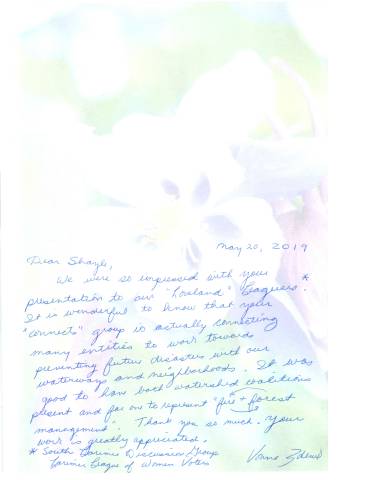 May 20, 2019
Dear Shayle,
We were so impressed with your
presentation to our "Loveland" Leaguers.*
It is wonderful to know that your
"connects" group is actually connecting
many entities to work towards
preventing future disasters with our
waterways and neighborhoods. It was
good to have both watershed coalitions
present and for one to represent "fire + forest
management". Thank you so much. Your
work is greatly appreciated.
* South Larimer Discussion Group
Larimer League of Women Voters